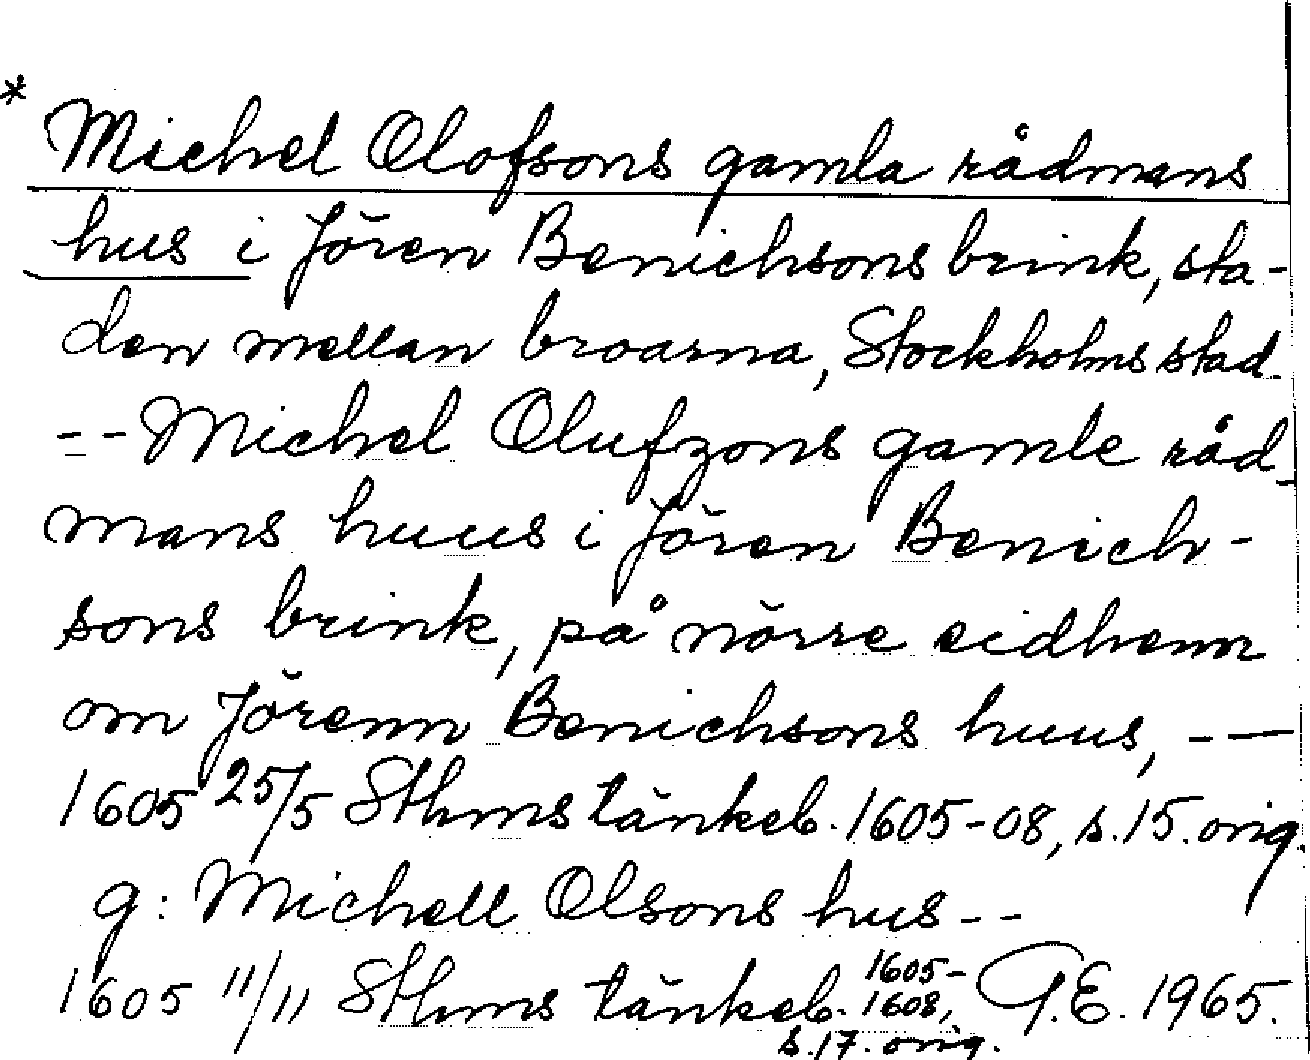 * Michel Olofsons gamla rådmans
hus i Jören Benichsons brink, sta-
den mellan broarna, Stockholms stad.
-- Michel Olufzons gamle råd-
mans huus i Jören Benich-
sons brink, på nörre eidhenn
om Jörenn Benichsons huus, --
1605 25/5 Sthms tänkeb. 1605-08, s.15. orig.
g: Michell Olsons hus --
1605 11/11 Sthms tänkeb. 1605-1608, s.17. orig. G.E. 1965.